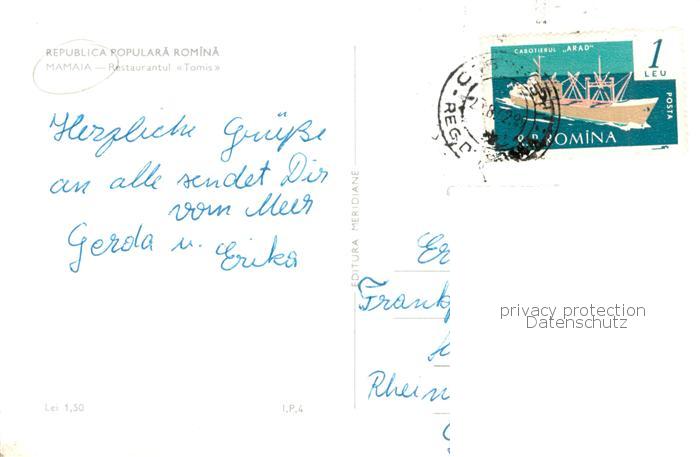 REPUBLICA POPULARĂ ROMÎNĂ
MAMAIA — Restaurantul «Tomis»
Herzliche Grüße
an alle sendet Dir
vom Meer
Gerda u. Erika
Lei 1,50
I.P.4
EDITURA MERIDIANE
CABOTIERUL „ARAD"
1
LEU
POSTA
R.P. ROMÎNA
Er
Frankf
Rhein
privacy protection
Datenschutz